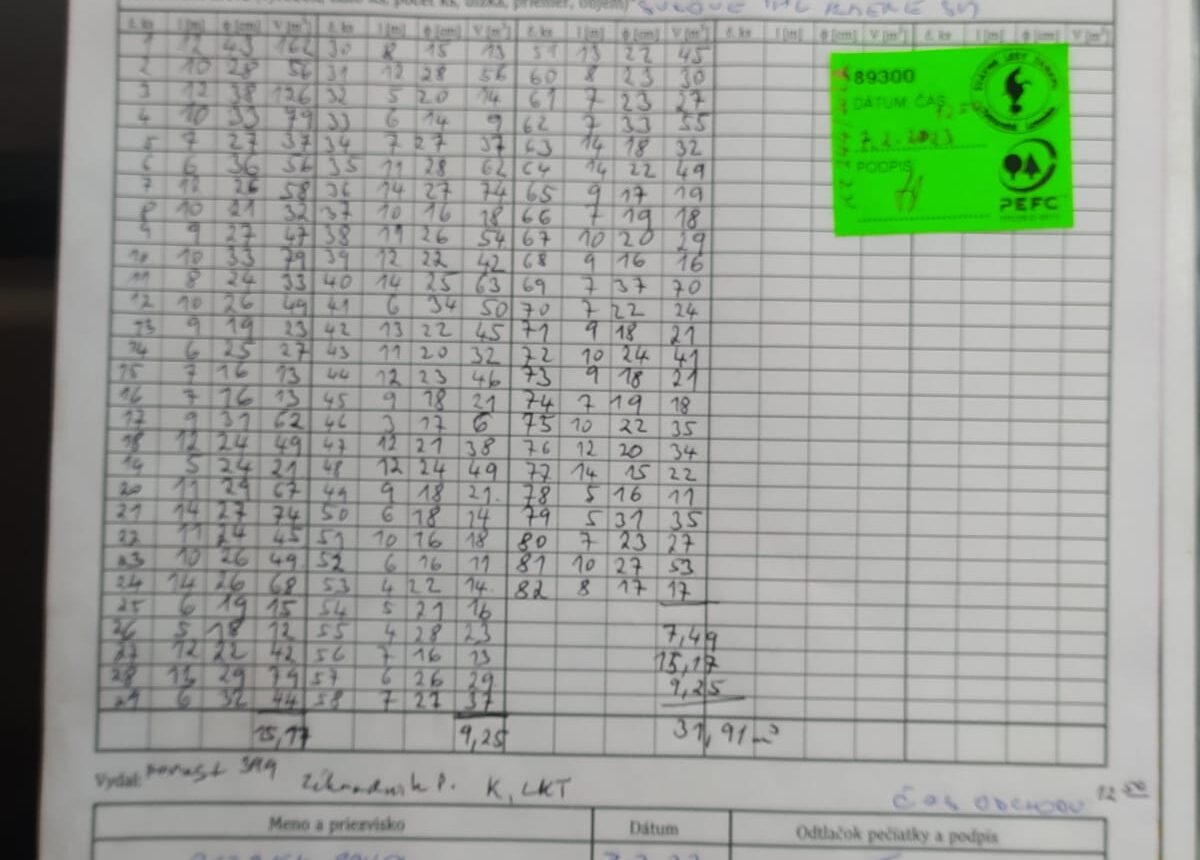 č. ks l [m] φ [cm] V [m³] č. ks l [m] φ [cm] V [m³] č. ks l [m] φ [cm] V [m³] č. ks l [m] φ [cm] V [m³] č. ks l [m] φ [cm] V [m³]
1 12 43 162 30 8 15 13 51 13 22 45
2 10 28 56 31 12 28 56 60 8 23 30
3 12 38 126 32 5 20 14 61 7 23 27
4 10 33 79 33 6 14 9 62 7 33 55
5 7 27 37 34 7 27 37 63 14 18 32
6 6 36 56 35 11 28 62 64 14 22 49
7 12 26 58 36 14 27 74 65 9 17 19
8 10 21 32 37 10 16 18 66 7 19 18
9 9 27 47 38 11 26 54 67 10 20 29
10 10 33 79 39 12 22 42 68 9 16 16
11 8 24 33 40 14 25 63 69 7 37 70
12 10 26 49 41 6 34 50 70 7 22 24
13 9 19 23 42 13 22 45 71 9 18 21
14 6 25 27 43 11 20 32 72 10 24 41
15 7 16 13 44 12 23 46 73 9 18 21
16 7 16 13 45 9 18 21 74 7 19 18
17 9 31 62 46 3 17 6 75 10 22 35
18 12 24 49 47 12 21 38 76 12 20 34
19 5 24 21 48 12 24 49 77 14 15 22
20 11 29 67 49 9 18 21. 78 5 16 11
21 14 27 74 50 6 18 14 79 5 31 35
22 11 24 45 51 10 16 18 80 7 23 27
23 10 26 49 52 6 16 11 81 10 27 53
24 14 26 68 53 4 22 14. 82 8 17 17
25 6 19 15 54 5 21 16
26 5 18 12 55 4 28 23 7,49
27 12 22 42 56 7 16 13 15,17
28 13 29 79 57 6 26 29 9,25
29 6 32 44 58 7 27 37
15,17 9,25 31,91 m³
89300
DÁTUM ČAS
7.2.2023
PODPIS
PEFC
Vydal: porast 399 P. K, LKT
ČAS ODCHODU 12 50
Meno a priezvisko Dátum Odtlačok pečiatky a podpis